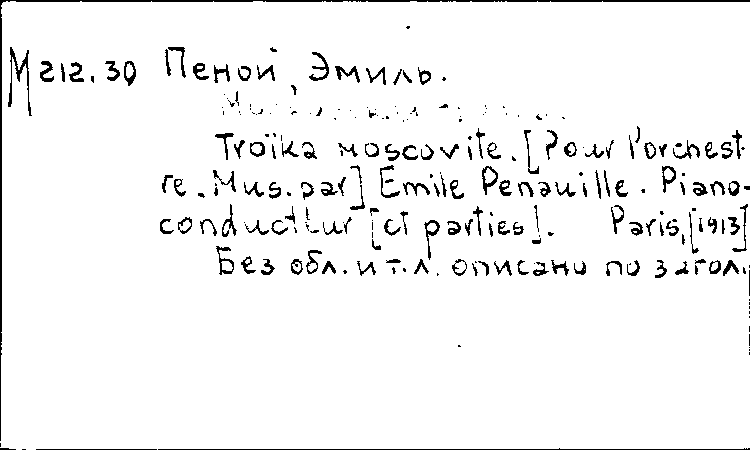 М 212.30 Пеной, Эмиль.
Troïka moscovite. [Pour l'orchest
re. Mus. par] Emile Penauille. Piano-
conducteur [et parties]. Paris, [1913]
Без обл. и т.л. описано по загол.